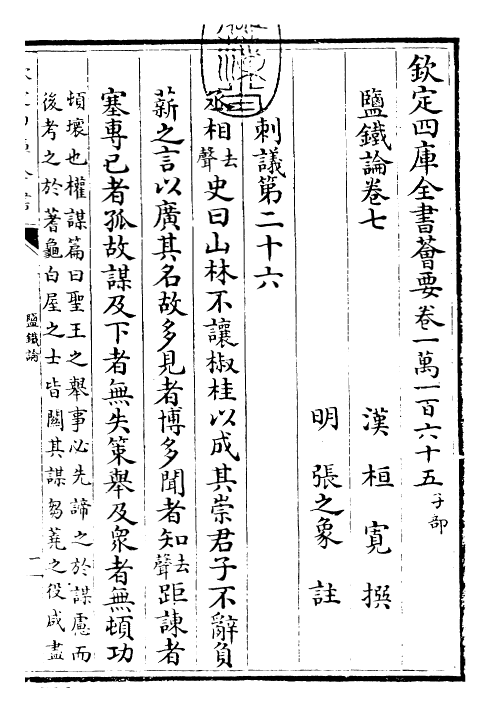 欽定四庫全書薈要卷一萬一百六十五子部
鹽鐵論卷七
漢桓寬撰
明張之象註
刺議第二十六
丞相去聲史曰山林不讓椒桂以成其崇君子不辭負
薪之言以廣其名故多見者博多聞者知去聲距諫者
塞專已者孤故謀及下者無失策舉及衆者無頓功
頓壞也權謀篇曰聖王之舉事必先諦之於謀慮而
後考之於蓍龜白屋之士皆關其謀芻蕘之役咸盡
鹽鐵論
一